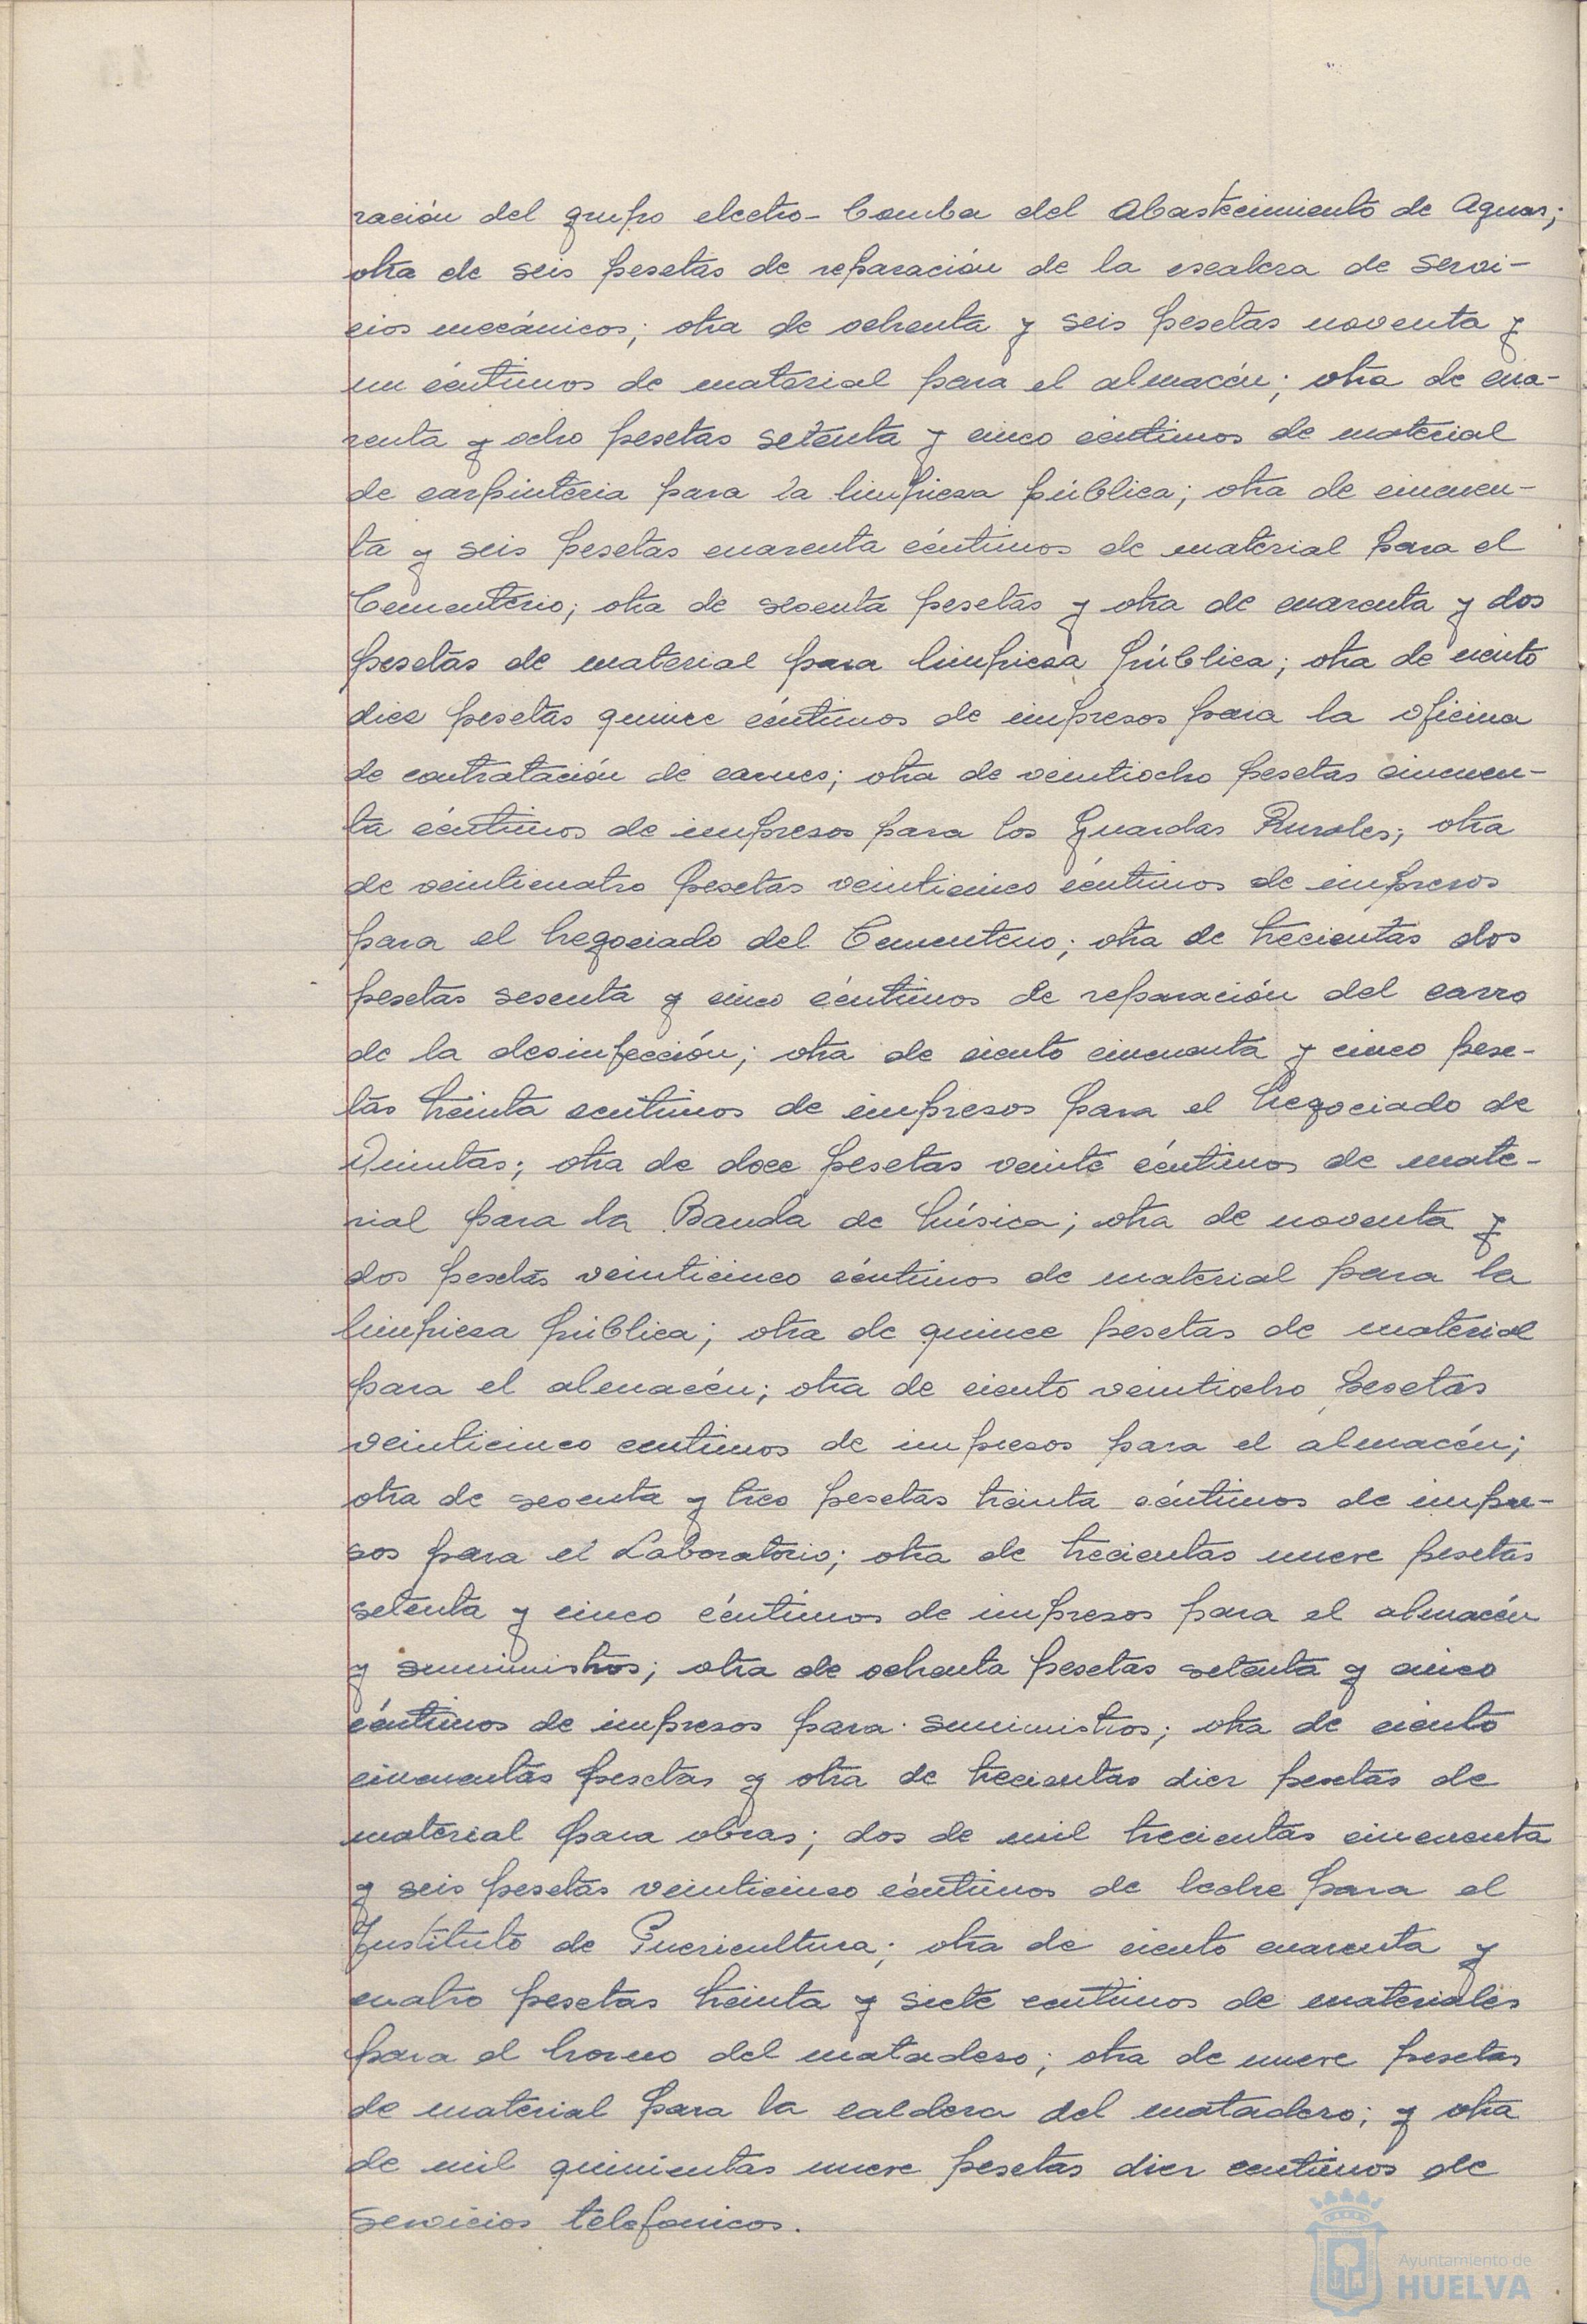 ración del grupo electro-bomba del Abastecimiento de Aguas;
otra de seis pesetas de reparación de la escalera de servi-
cios mecánicos; otra de ochenta y seis pesetas noventa y
un céntimos de material para el almacén; otra de cua-
renta y ocho pesetas setenta y cinco céntimos de material
de carpinteria para la limpieza pública; otra de cincuen-
ta y seis pesetas cuarenta céntimos de material para el
Cementerio; otra de sesenta pesetas y otra de cuarenta y dos
pesetas de material para limpieza pública; otra de ciento
diez pesetas quince céntimos de impresos para la oficina
de contratación de carnes; otra de veintiocho pesetas cincuen-
ta céntimos de impresos para los Guardas Rurales; otra
de veinticuatro pesetas veinticinco céntimos de impresos
para el Negociado del Cementerio; otra de trecientas dos
pesetas sesenta y cinco céntimos de reparación del carro
de la desinfección; otra de ciento cincuenta y cinco pese-
tas treinta centimos de impresos para el Negociado de
Quintas; otra de doce pesetas veinte céntimos de mate-
rial para la Banda de Música; otra de noventa y
dos pesetas veinticinco céntimos de material para la
limpieza pública; otra de quince pesetas de material
para el almacén; otra de ciento veintiocho pesetas
veinticinco centimos de impresos para el almacén;
otra de sesenta y tres pesetas treinta céntimos de impre-
sos para el Laboratorio; otra de trecientas nueve pesetas
setenta y cinco céntimos de impresos para el almacén
y suministros; otra de ochenta pesetas setenta y cinco
céntimos de impresos para suministros; otra de ciento
cincuentas pesetas y otra de trecientas diez pesetas de
material para obras; dos de mil trecientas cincuenta
y seis pesetas veinticinco céntimos de leche para el
Instituto de Puericultura; otra de ciento cuarenta y
cuatro pesetas treinta y siete centimos de materiales
para el horno del matadero; otra de nueve pesetas
de material para la caldera del matadero; y otra
de mil quinientas nueve pesetas diez centimos de
servicios telefonicos.
Ayuntamiento de
HUELVA